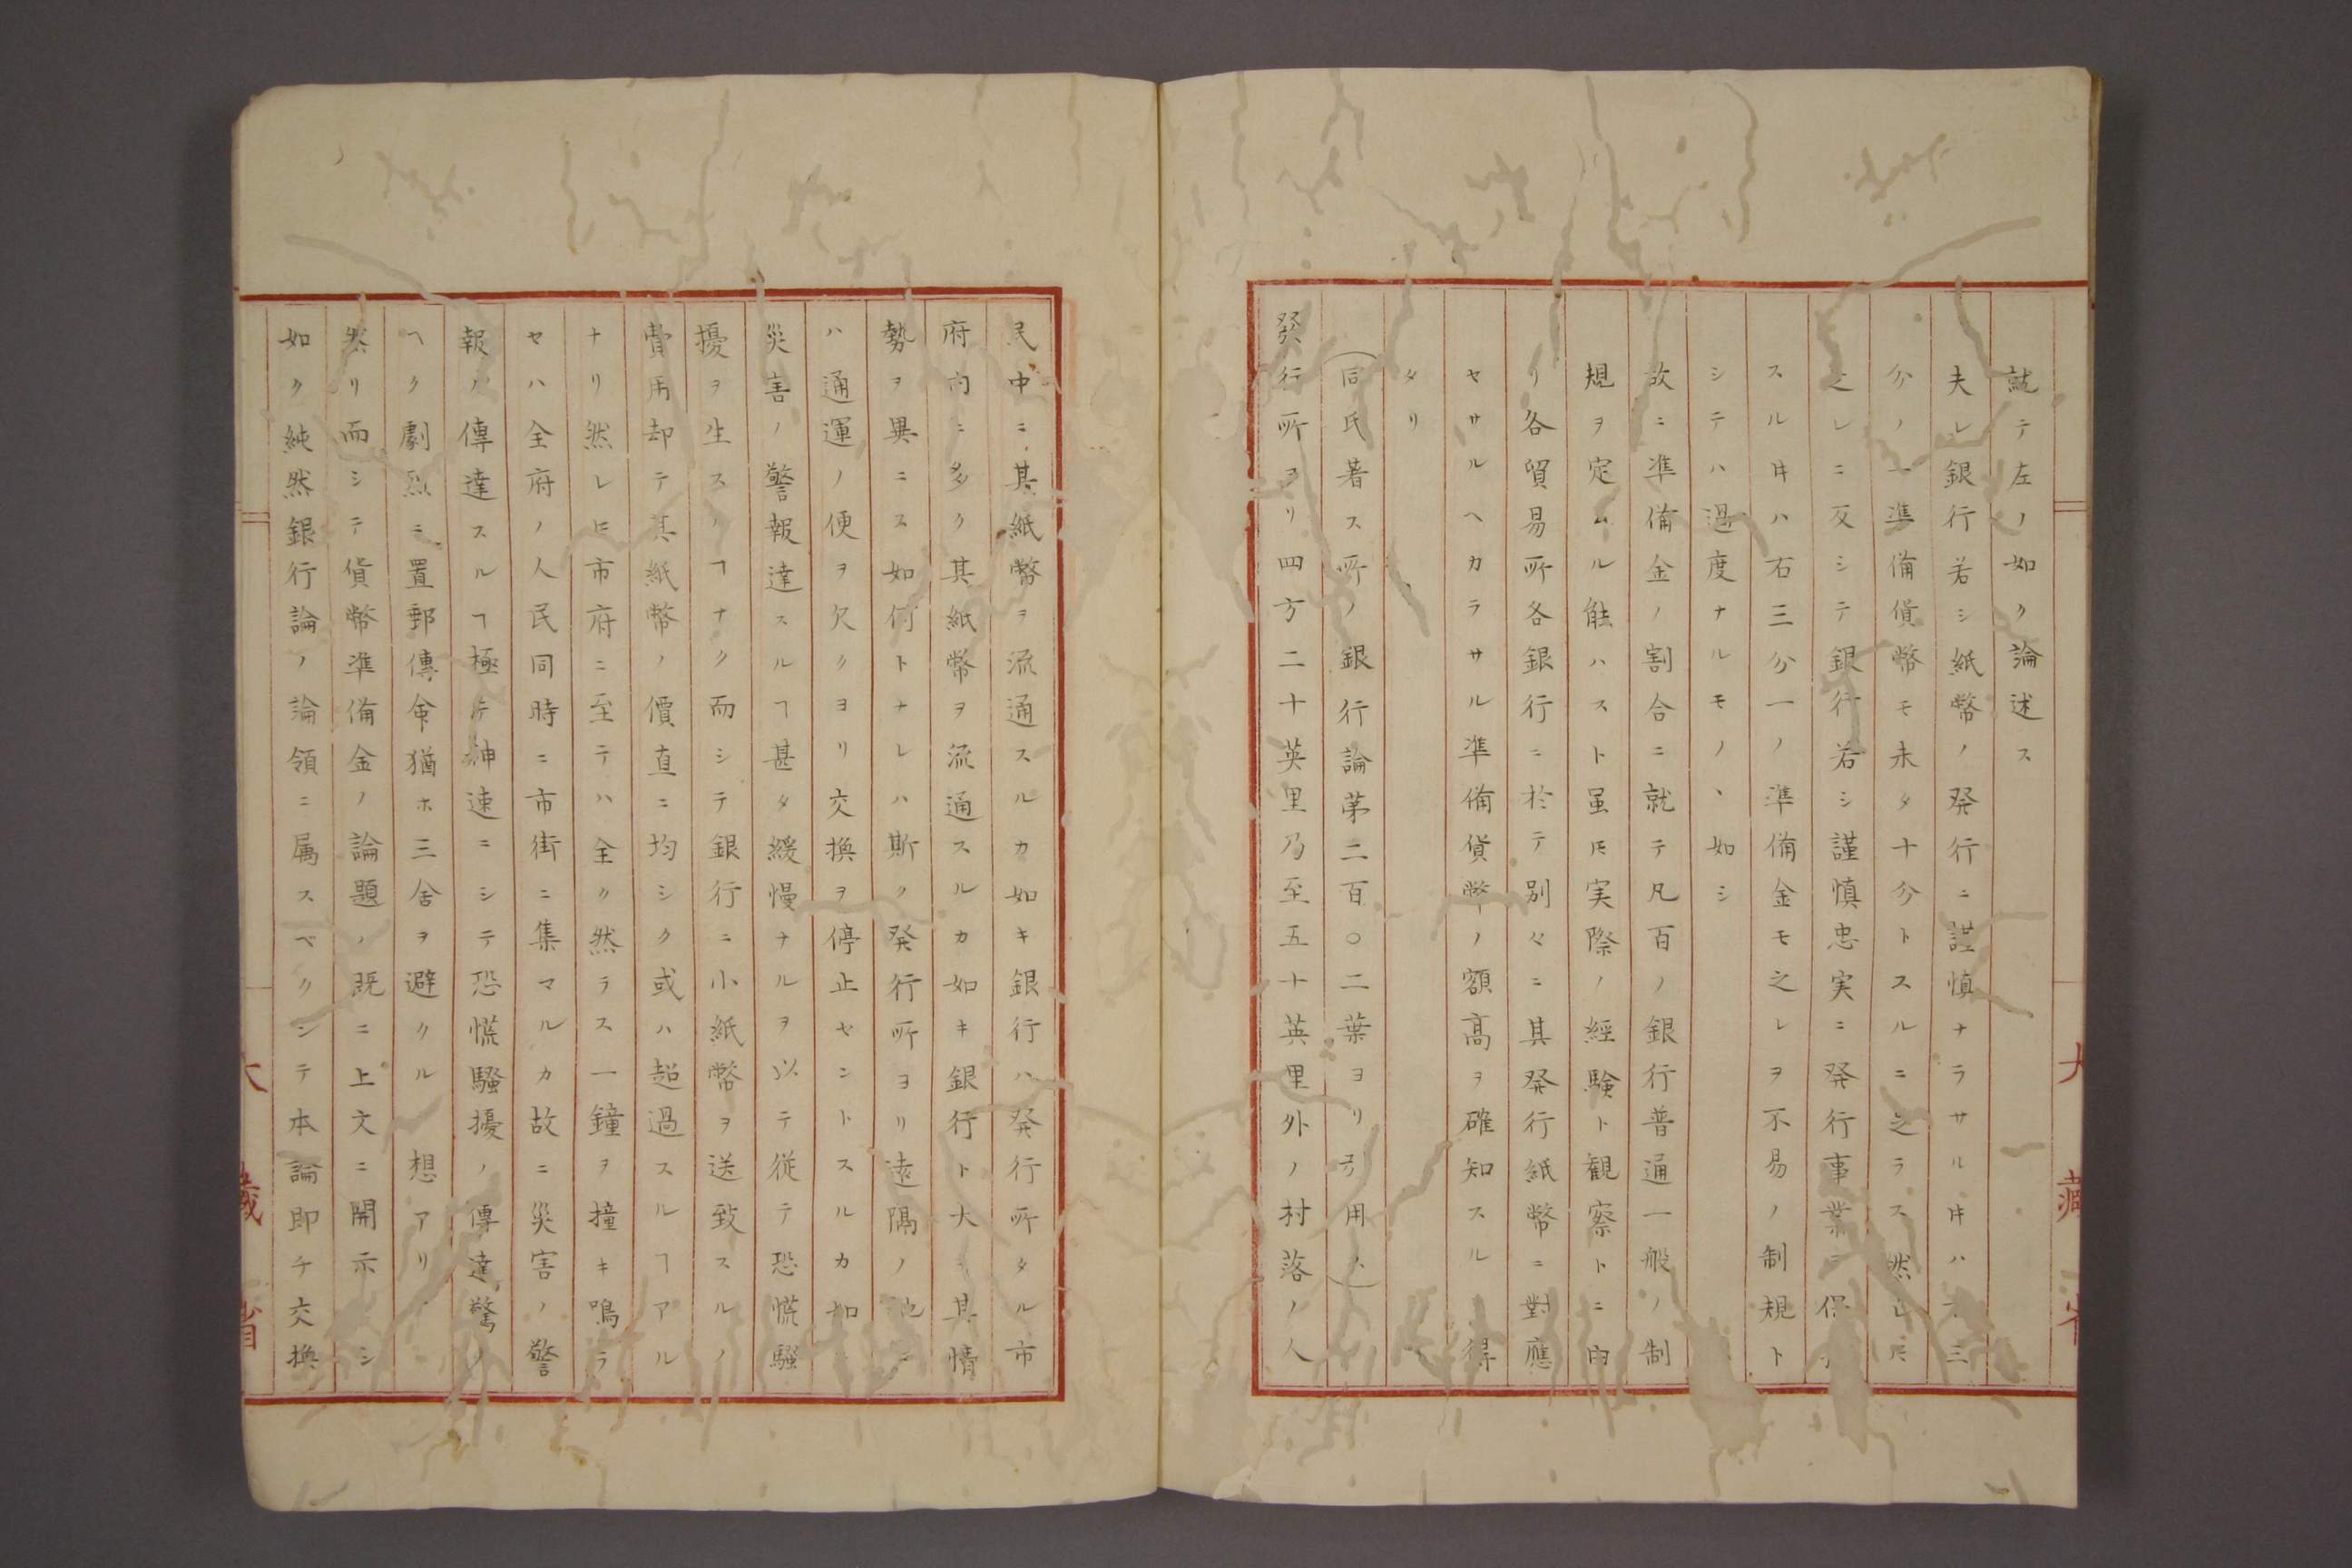 就テ左ノ如ク論述ス
夫レ銀行若シ紙幣ノ発行ニ謹慎ナラサル㐧ハ三
分ノ一準備貨幣モ未タ十分トスルニ足ラス然レ𪜈
之レニ反シテ銀行若シ謹慎忠実ニ発行事業ニ保
スル㐧ハ右三分一ノ準備金モ之レヲ不易ノ制規ト
シテハ過度ナルモノヽ如シ
故ニ準備金ノ割合ニ就テ凡百ノ銀行普通一般ノ制
規ヲ定ムル能ハスト虽𪜈実際ノ經験ト観察トニ由
リ各貿易所各銀行ニ於テ別々ニ其発行紙幣ニ對應
セサルヘカラサル準備貨幣ノ額高ヲ確知スル得
タリ
(同氏著ス所ノ銀行論苐二百〇二葉ヨリ引用ス)
発行所ヨリ四方二十英里乃至五十英里外ノ村落ノ人
民中ニ其紙幣ヲ流通スルカ如キ銀行ハ発行所タル市
府内ニ多ク其紙幣ヲ流通スルカ如キ銀行ト大ニ其情
勢ヲ異ニス如何トナレハ斯ク発行所ヨリ遠隔ノ地ニ
ハ通運ノ便ヲ欠クヨリ交換ヲ停止セントスルカ如
災害ノ警報達スルヿ甚タ緩慢ナルヲ以テ従テ恐慌騒
擾ヲ生スルヿナク而シテ銀行ニ小紙幣ヲ送致スルノ
費用却テ其紙幣ノ價直ニ均シク或ハ超過スルヿアル
ナリ然レ𪜈市府ニ至テハ全ク然ラス一鐘ヲ撞キ鳴ラ
セハ全府ノ人民同時ニ市街ニ集マルカ故ニ災害ノ警
報ノ傳達スルヿ極テ神速ニシテ恐慌騒擾ノ傳達驚ク
ヘク劇烈ニ置郵傳命猶ホ三舍ヲ避クル想アリ
然リ而シテ貨幣準備金ノ論題ハ既ニ上文ニ開示シ
如ク純然銀行論ノ論領ニ属スベクシテ本論即チ交換
大藏省
大藏省